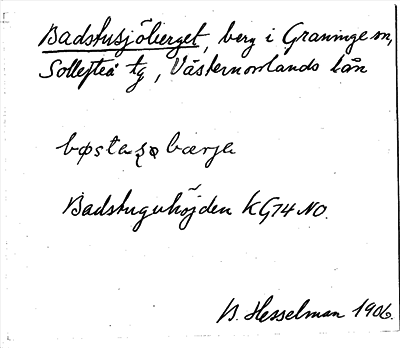 Badstusjöberget, berg i Graninge sn,
Sollefteå tg, Västernorrlands län
bøsta bærje
Badstuguhöjden KG74 NO.
B. Hesselman 1906.